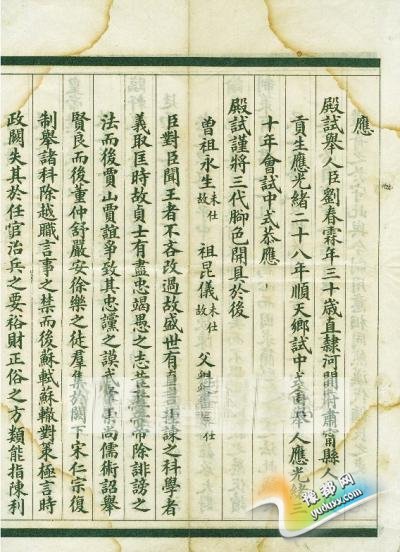 應
殿試舉人臣劉春霖年三十歲直隸河間府肅甯縣人
貢生應光緒二十八年順天鄉試中式舉人應光緒三
十年會試中式恭應
殿試謹將三代腳色開具於後
曾祖永生未仕故 祖昆儀未仕故 父 仕
臣對臣聞王者不吝改過故盛世有直言極諫之科學者
義取匡時故貞士有盡忠竭愚之志昔 帝除誹謗之
法而後賈山賈誼爭致其忠讜之謨武帝崇尚儒術詔舉
賢良而後董仲舒嚴安徐樂之徒羣集於闕下宋仁宗復
制舉諸科除越職言事之禁而後蘇軾蘇轍對策極言時
政闕失其於任官治兵之要裕財正俗之方類能指陳利
豫都网
yuduxx.com